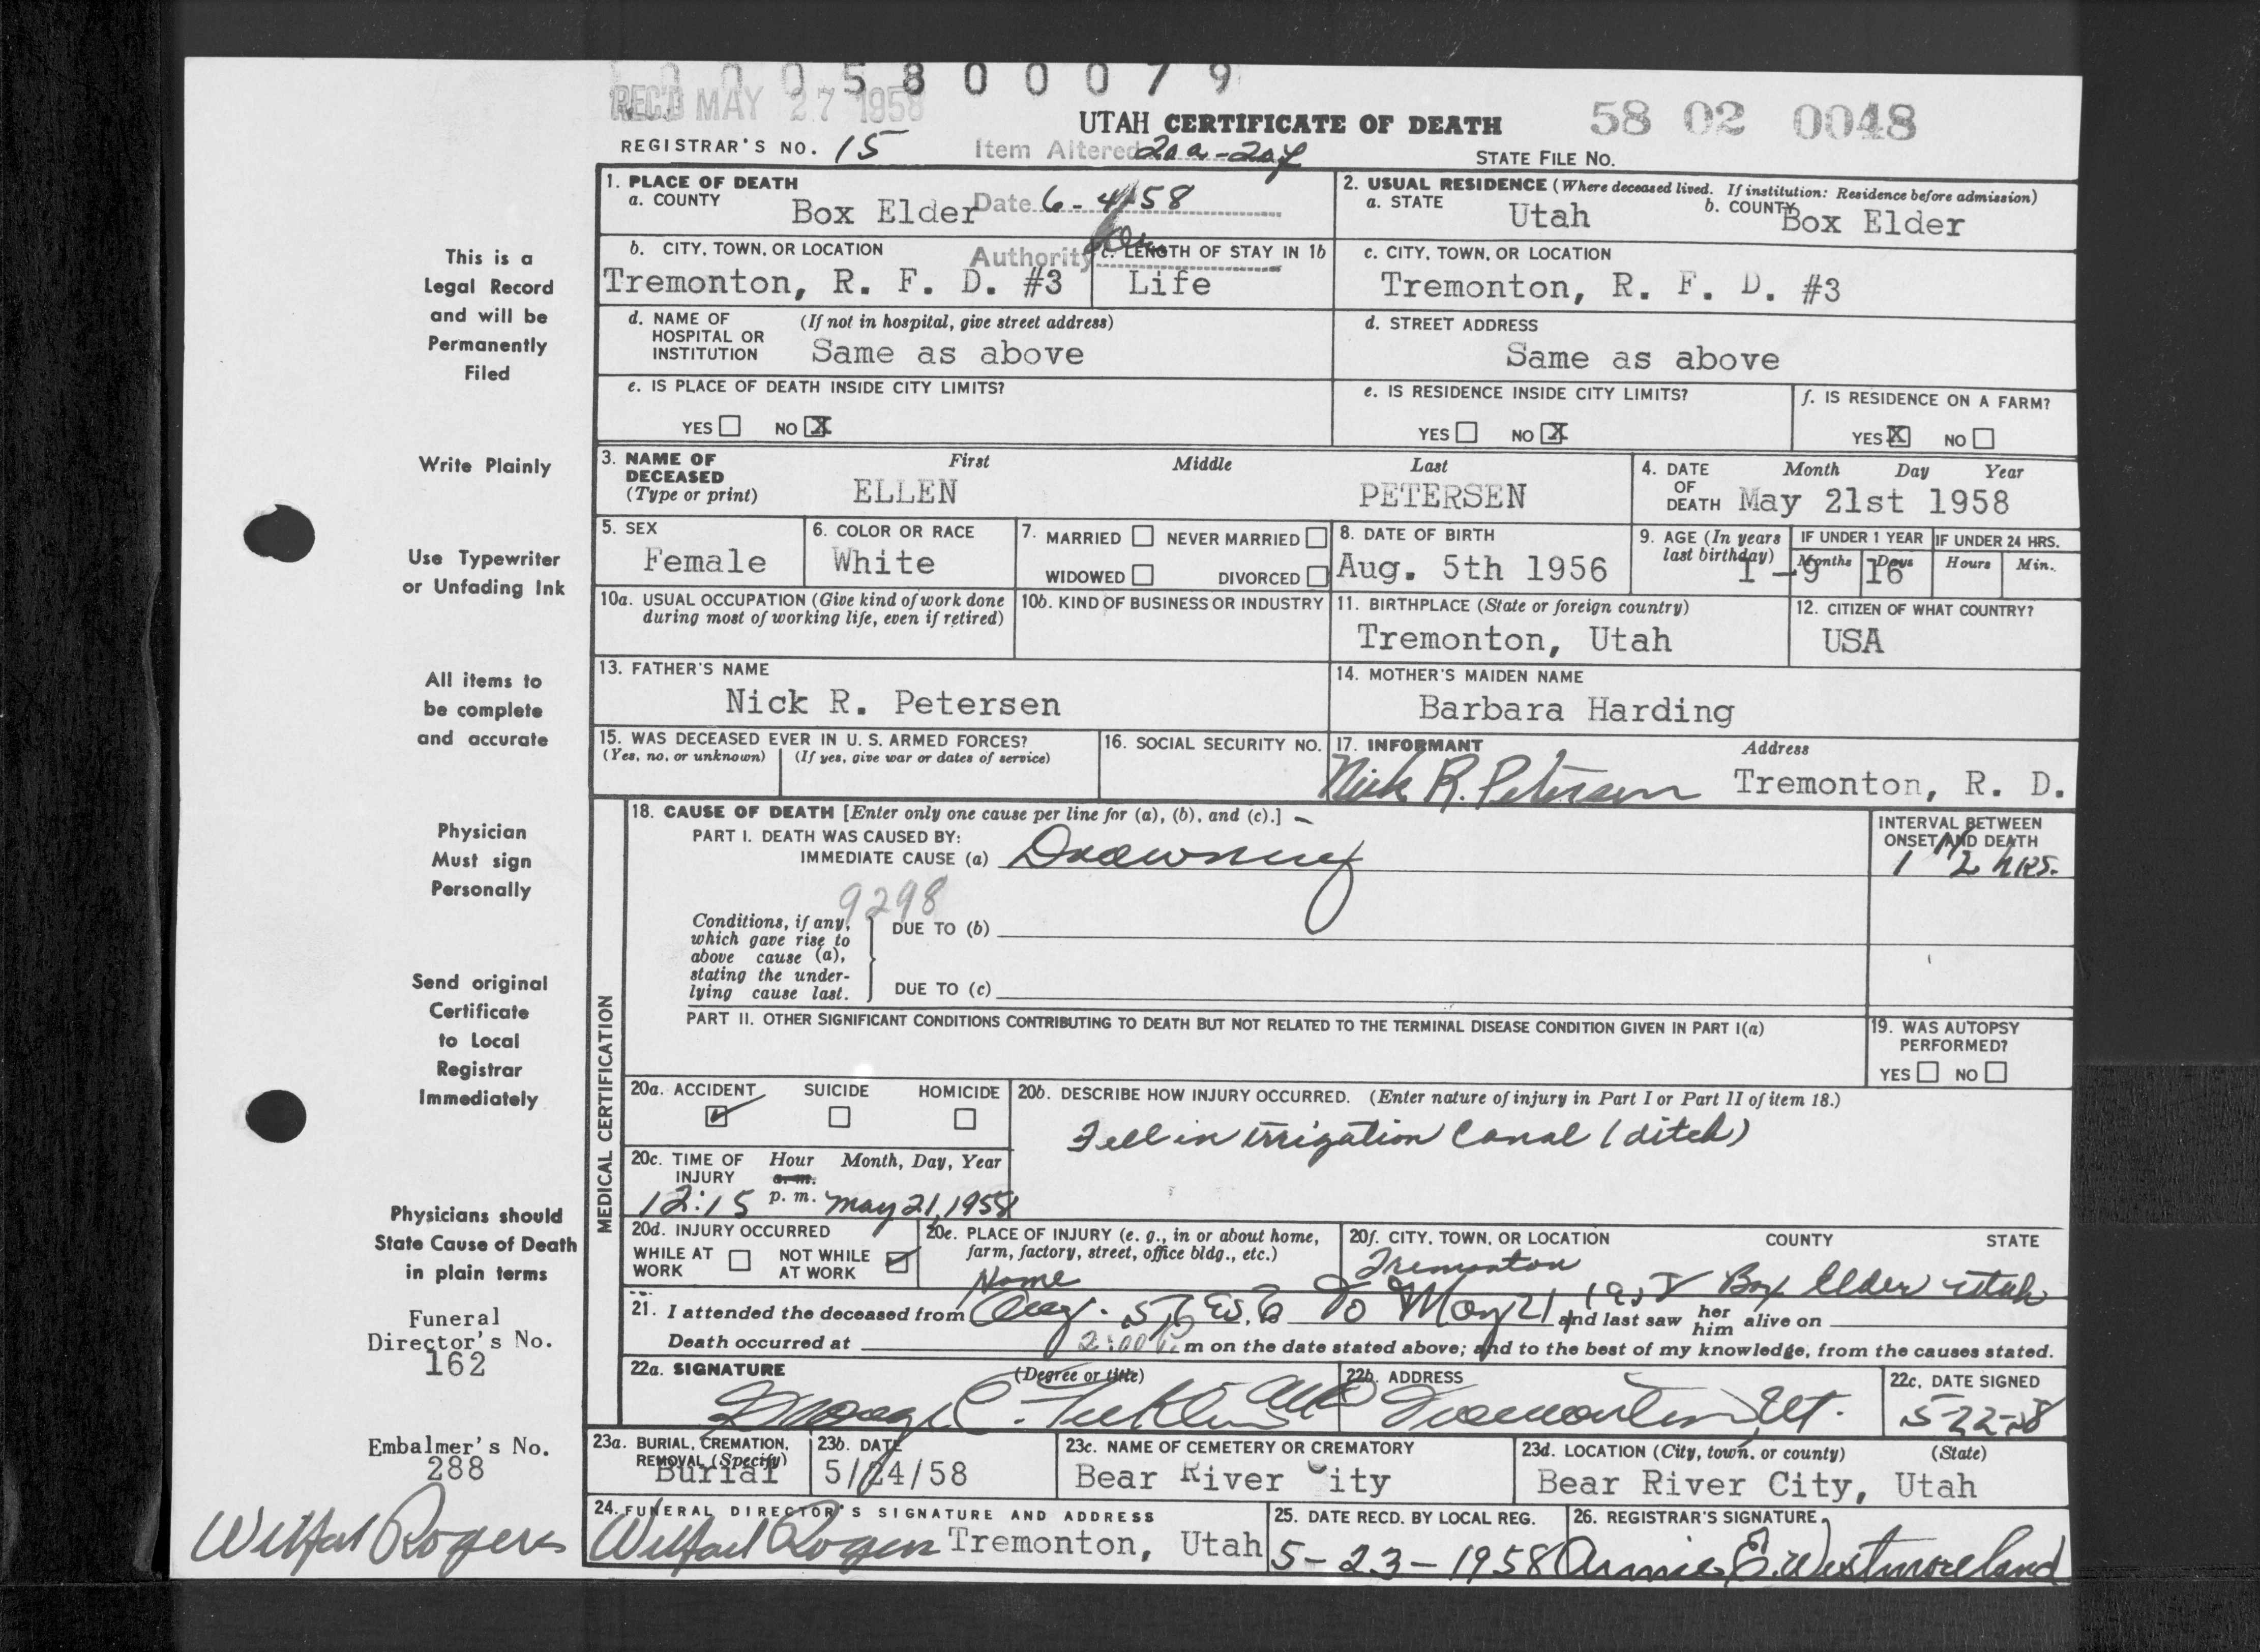 0 0 0 5 8 0 0 0 7 9
REC'D MAY 27 1958
UTAH CERTIFICATE OF DEATH
58 02 0048
REGISTRAR'S NO. 15
Item Altered 20a-20f
STATE FILE NO.
Date 6-4-58
Authority
1. PLACE OF DEATH
a. COUNTY Box Elder
2. USUAL RESIDENCE (Where deceased lived. If institution: Residence before admission)
a. STATE Utah b. COUNTY Box Elder
b. CITY, TOWN, OR LOCATION
Tremonton, R. F. D. #3
c. LENGTH OF STAY IN 1b
Life
c. CITY, TOWN, OR LOCATION
Tremonton, R. F. D. #3
d. NAME OF HOSPITAL OR INSTITUTION (If not in hospital, give street address)
Same as above
d. STREET ADDRESS
Same as above
e. IS PLACE OF DEATH INSIDE CITY LIMITS?
YES NO X
e. IS RESIDENCE INSIDE CITY LIMITS?
YES NO X
f. IS RESIDENCE ON A FARM?
YES X NO
3. NAME OF DECEASED (Type or print)
First Middle Last
ELLEN PETERSEN
4. DATE OF DEATH Month Day Year
May 21st 1958
5. SEX
Female
6. COLOR OR RACE
White
7. MARRIED NEVER MARRIED
WIDOWED DIVORCED
8. DATE OF BIRTH
Aug. 5th 1956
9. AGE (In years last birthday)
IF UNDER 1 YEAR IF UNDER 24 HRS.
Months Days Hours Min.
1 - 9 16
10a. USUAL OCCUPATION (Give kind of work done during most of working life, even if retired)
10b. KIND OF BUSINESS OR INDUSTRY
11. BIRTHPLACE (State or foreign country)
Tremonton, Utah
12. CITIZEN OF WHAT COUNTRY?
USA
13. FATHER'S NAME
Nick R. Petersen
14. MOTHER'S MAIDEN NAME
Barbara Harding
15. WAS DECEASED EVER IN U. S. ARMED FORCES?
(Yes, no, or unknown) (If yes, give war or dates of service)
16. SOCIAL SECURITY NO.
17. INFORMANT Address
Nick R. Petersen Tremonton, R. D.
MEDICAL CERTIFICATION
18. CAUSE OF DEATH [Enter only one cause per line for (a), (b), and (c).]
PART I. DEATH WAS CAUSED BY:
IMMEDIATE CAUSE (a) Drowning
INTERVAL BETWEEN ONSET AND DEATH
1 1/2 hrs.
9298
Conditions, if any, which gave rise to above cause (a), stating the underlying cause last.
DUE TO (b)
DUE TO (c)
PART II. OTHER SIGNIFICANT CONDITIONS CONTRIBUTING TO DEATH BUT NOT RELATED TO THE TERMINAL DISEASE CONDITION GIVEN IN PART I(a)
19. WAS AUTOPSY PERFORMED?
YES NO
20a. ACCIDENT SUICIDE HOMICIDE
20b. DESCRIBE HOW INJURY OCCURRED. (Enter nature of injury in Part I or Part II of item 18.)
Fell in irrigation Canal (ditch)
20c. TIME OF INJURY Hour Month, Day, Year
a. m.
12:15 p. m. May 21, 1958
20d. INJURY OCCURRED
WHILE AT WORK NOT WHILE AT WORK
20e. PLACE OF INJURY (e. g., in or about home, farm, factory, street, office bldg., etc.)
Home
20f. CITY, TOWN, OR LOCATION COUNTY STATE
Tremonton Box Elder Utah
21. I attended the deceased from Aug. 5, 1956 To May 21 1958 and last saw her him alive on
Death occurred at 2:00 P. m on the date stated above; and to the best of my knowledge, from the causes stated.
22a. SIGNATURE (Degree or title)
22b. ADDRESS
Tremonton, Ut.
22c. DATE SIGNED
5-22-58
23a. BURIAL, CREMATION, REMOVAL (Specify)
Burial
23b. DATE
5/24/58
23c. NAME OF CEMETERY OR CREMATORY
Bear River City
23d. LOCATION (City, town, or county) (State)
Bear River City, Utah
24. FUNERAL DIRECTOR'S SIGNATURE AND ADDRESS
Rogers Tremonton, Utah
25. DATE RECD. BY LOCAL REG.
5-23-1958
26. REGISTRAR'S SIGNATURE
Annie E. Westmoreland
This is a
Legal Record
and will be
Permanently
Filed
Write Plainly
Use Typewriter
or Unfading Ink
All items to
be complete
and accurate
Physician
Must sign
Personally
Send original
Certificate
to Local
Registrar
Immediately
Physicians should
State Cause of Death
in plain terms
Funeral
Director's No.
162
Embalmer's No.
288
Rogers